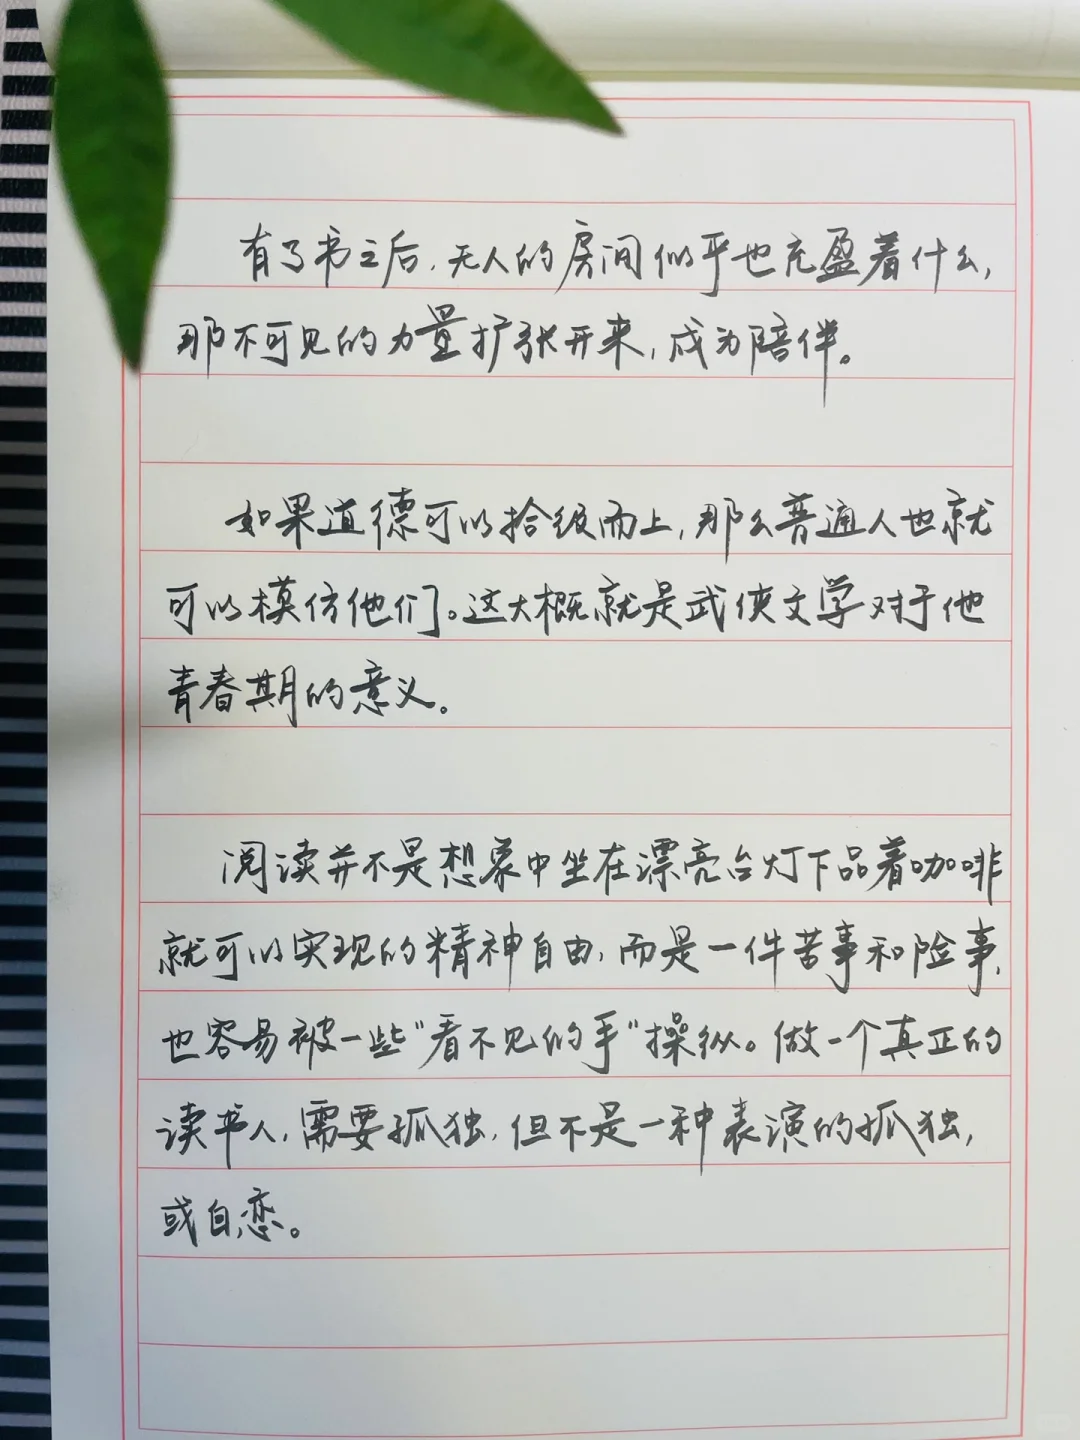 有了书之后,无人的房间似乎也充盈着什么,
那不可见的力量扩张开来,成为陪伴。
如果道德可以拾级而上,那么普通人也就
可以模仿他们。这大概就是武侠文学对于他
青春期的意义。
阅读并不是想象中坐在漂亮台灯下品着咖啡
就可以实现的精神自由,而是一件苦事和险事,
也容易被一些“看不见的手”操纵。做一个真正的
读书人,需要孤独,但不是一种表演的孤独,
或自恋。